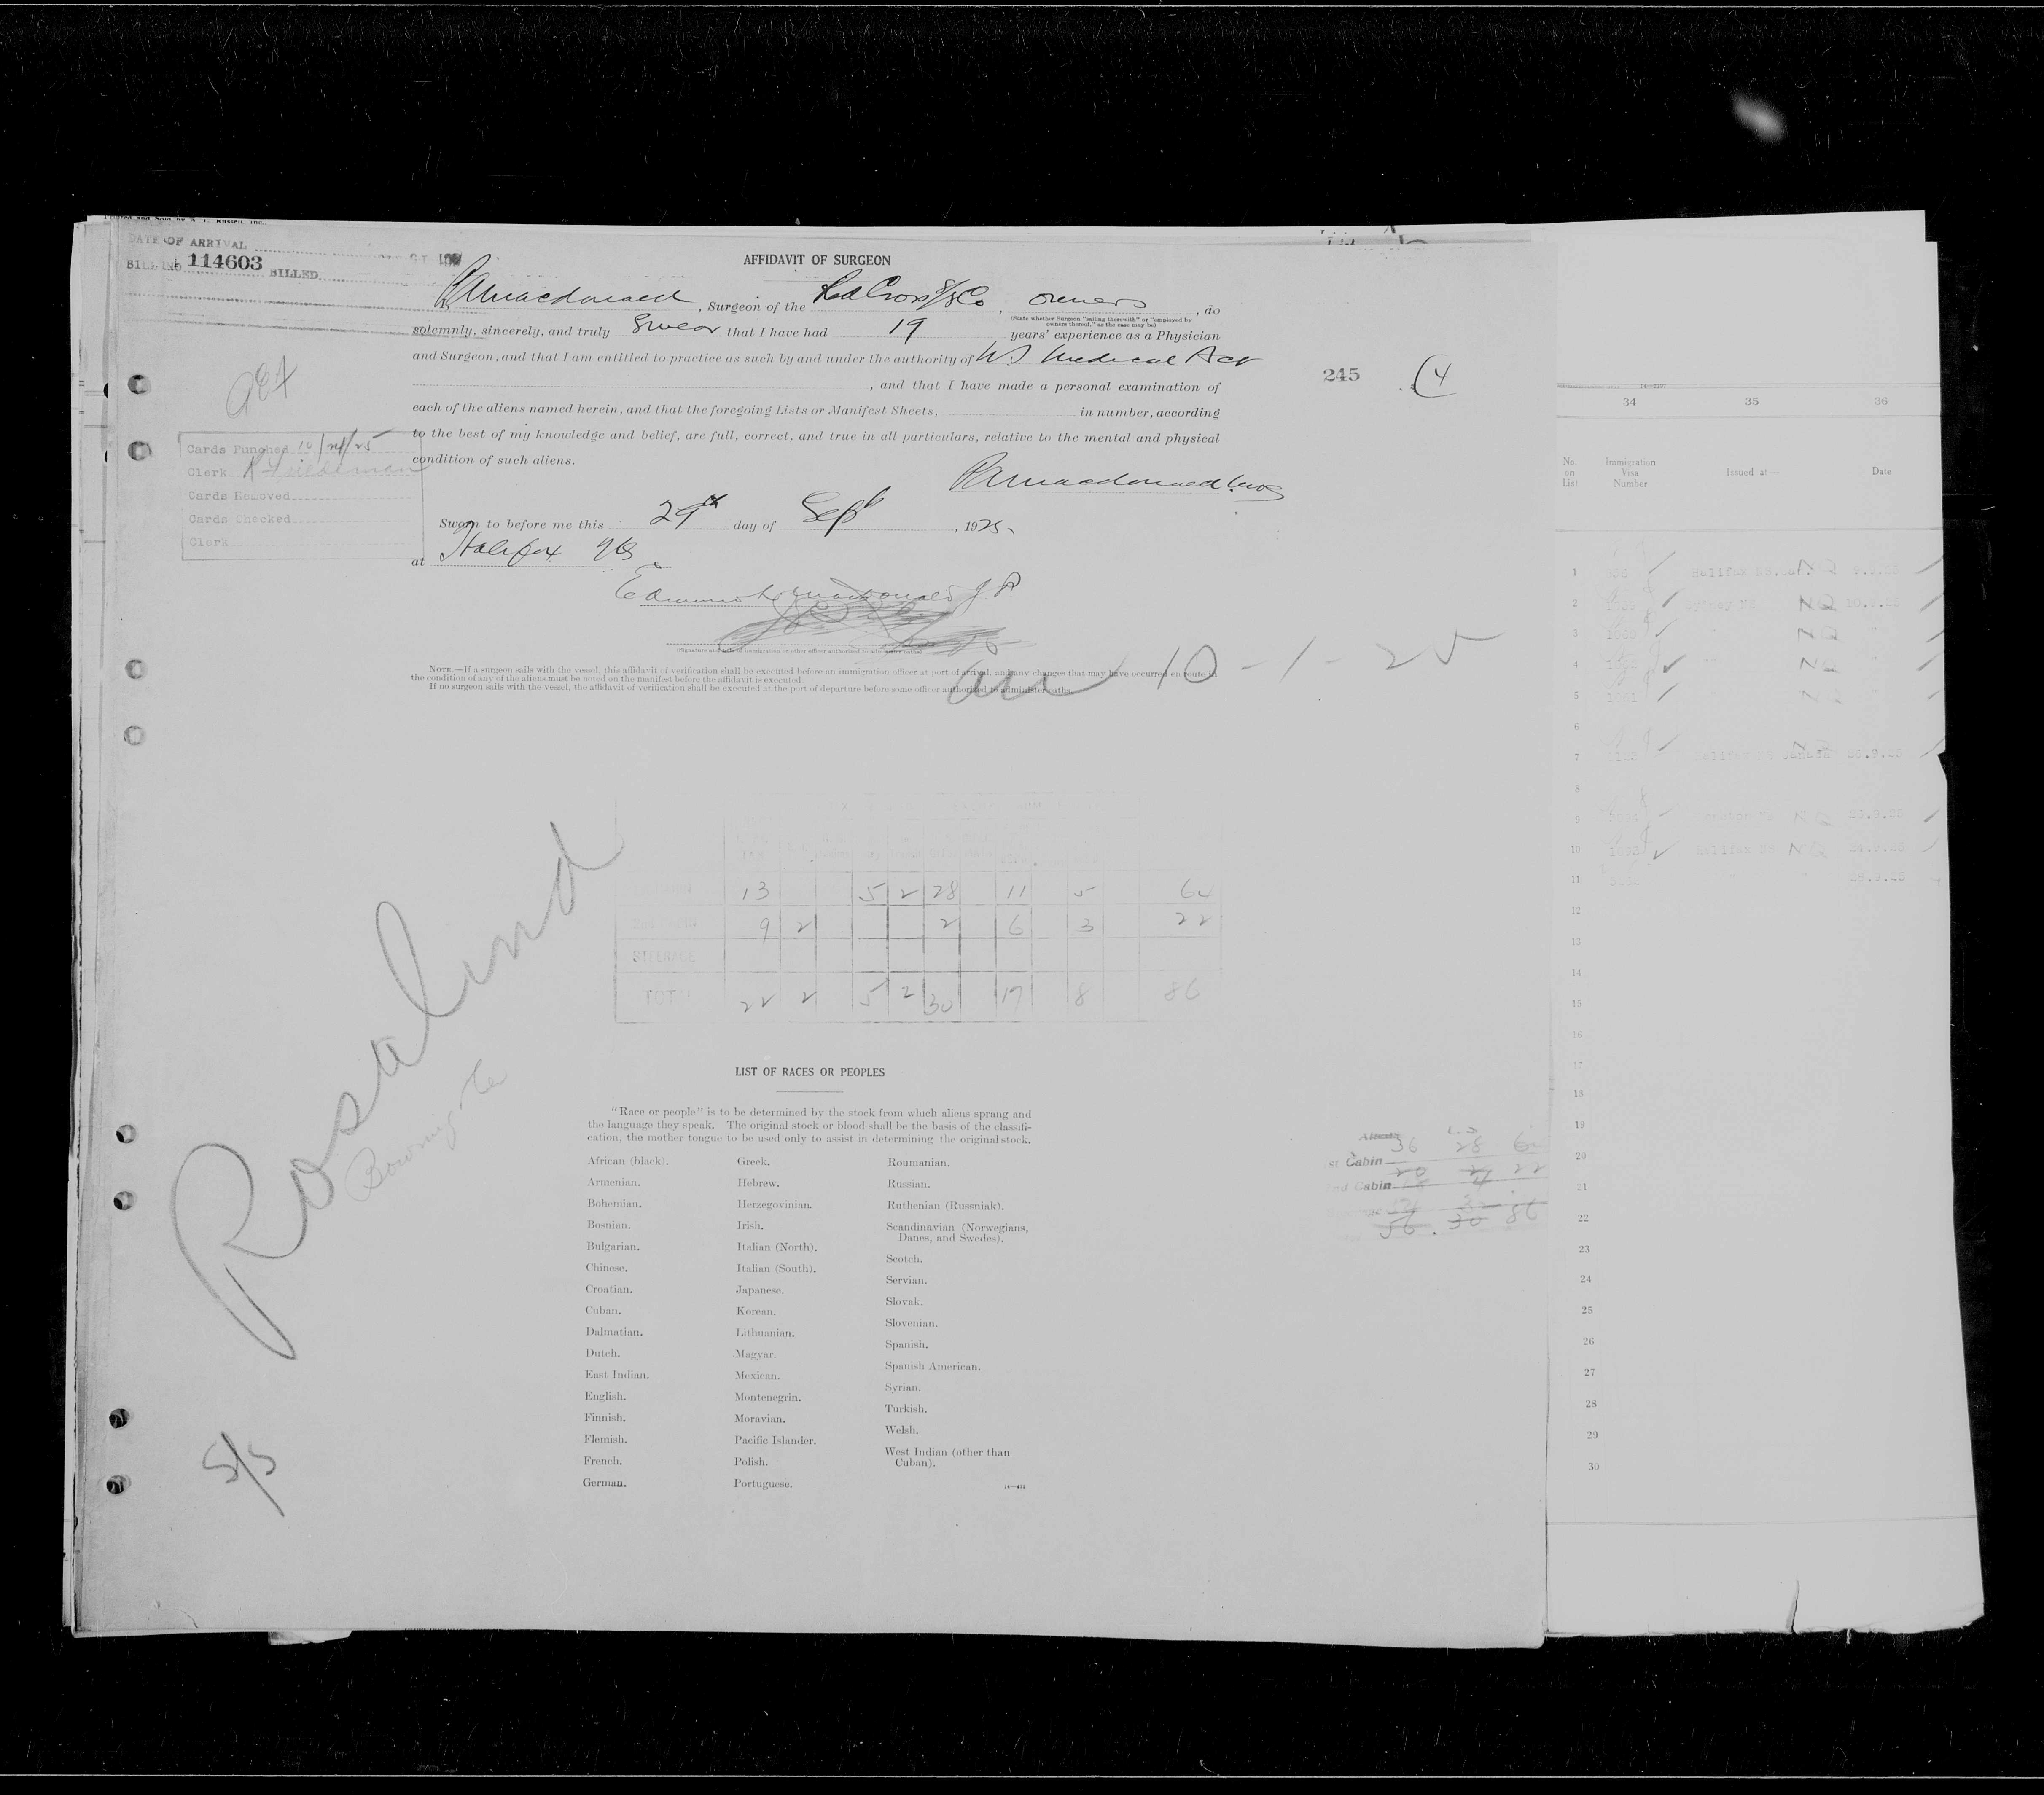 DATE OF ARRIVAL
BILL NO 114603 BILLED
AFFIDAVIT OF SURGEON
Macdonald, Surgeon of the Red Cross S/S Co, owners, do
(State whether Surgeon "sailing therewith" or "employed by owners thereof," as the case may be)
solemnly, sincerely, and truly swear that I have had 19 years' experience as a Physician
and Surgeon, and that I am entitled to practice as such by and under the authority of Medical Act
, and that I have made a personal examination of
245 (4
each of the aliens named herein, and that the foregoing Lists or Manifest Sheets, in number, according
to the best of my knowledge and belief, are full, correct, and true in all particulars, relative to the mental and physical
condition of such aliens.
Cards Punched 10/24/25
Clerk
Cards Removed
Cards Checked
Clerk
Macdonald
Sworn to before me this 29th day of Sept, 1925.
at Halifax NS
Macdonald J P
NOTE.—If a surgeon sails with the vessel, this affidavit of verification shall be executed before an immigration officer at port of arrival, and any changes that may have occurred en route in
the condition of any of the aliens must be noted on the manifest before the affidavit is executed.
If no surgeon sails with the vessel, the affidavit of verification shall be executed at the port of departure before some officer authorized to administer oaths.
10-1-25
13 5 2 28 11 5 64
9 2 2 6 3 22
STEERAGE
TOT 22 2 5 2 30 17 8 86
Rosalind
Bowring & Co
S/S
LIST OF RACES OR PEOPLES
"Race or people" is to be determined by the stock from which aliens sprang and
the language they speak. The original stock or blood shall be the basis of the classifi-
cation, the mother tongue to be used only to assist in determining the original stock.
African (black).
Armenian.
Bohemian.
Bosnian.
Bulgarian.
Chinese.
Croatian.
Cuban.
Dalmatian.
Dutch.
East Indian.
English.
Finnish.
Flemish.
French.
German.
Greek.
Hebrew.
Herzegovinian.
Irish.
Italian (North).
Italian (South).
Japanese.
Korean.
Lithuanian.
Magyar.
Mexican.
Montenegrin.
Moravian.
Pacific Islander.
Polish.
Portuguese.
Roumanian.
Russian.
Ruthenian (Russniak).
Scandinavian (Norwegians,
Danes, and Swedes).
Scotch.
Servian.
Slovak.
Slovenian.
Spanish.
Spanish American.
Syrian.
Turkish.
Welsh.
West Indian (other than
Cuban).
Aliens
st Cabin 36 28
Cabin 22
56 30 86
34 35 36
No. on List
Immigration Visa Number
Issued at—
Date
1 Halifax NS. NQ
2 Sydney NS NQ 10.9.25
3 NQ
4 NQ
5
6
7 Halifax NS Canada
8
9 NQ
10 Halifax NS NQ
11
12
13
14
15
16
17
18
19
20
21
22
23
24
25
26
27
28
29
30